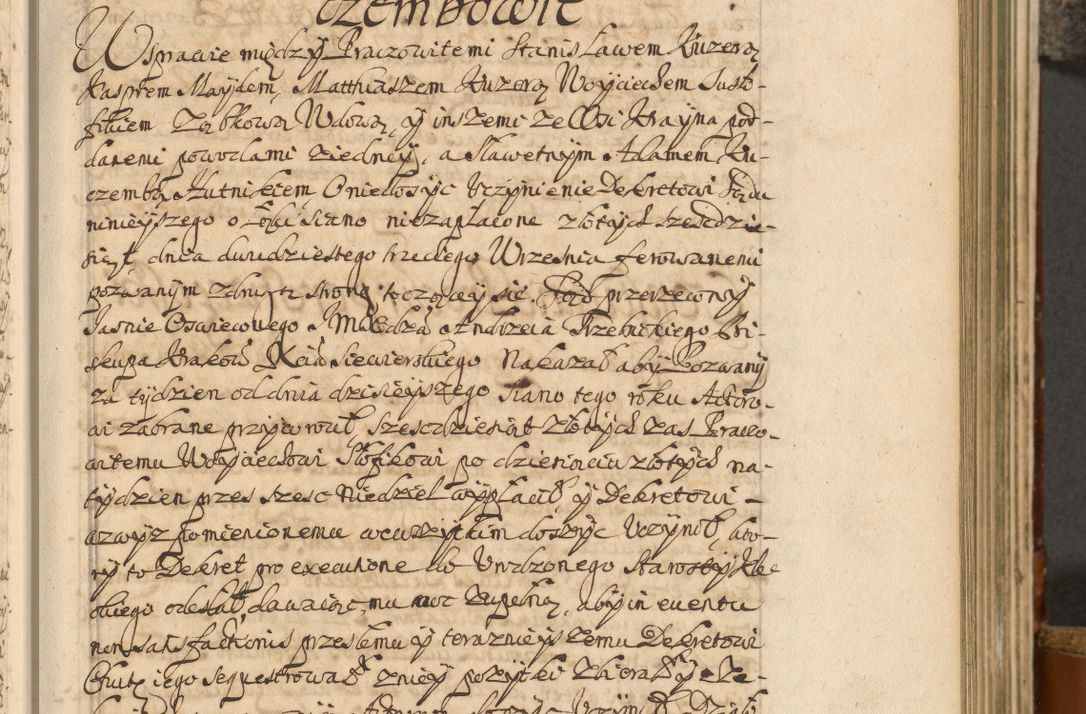 czembowie
W Sprawie między Praczowitemi Stanisławem Kuzerą
Kasprem Maydem, Matthiaszem Kuzerą Woyciechem Jusz-
fikiem Ząbkową Wdową, y inszemi ze Wsi Krayna pod-
danemi powodami ziedney, a Sławetnym Adamem Ku-
czembą Kutnikiem O niedosyc Uczynienie Dekretowi Sądu
ninieyszego o siano niezapłacone złotych szescdzie-
siąt, dnia dwudziestego trzeciego Wrzesnia ferowanemi
pozwanym zdrugiey strony toczącey się. Sąd przerzeczony
Jasnie Oswieconego JMci Xiędza Andrzeia Trzebickiego Bi-
skupa Krakow Xcia Siewierskiego Nakazał aby Pozwany
za tydzien od dnia dzisieyszego siano tego roku Aktoro-
wi zabrane przywrocił, szescdziesiąt złotych zas Praczo-
witemu Woyciechowi po dziesiąciu złotych na-
tydzien przes szesc Niedziel wypłacił, y Dekretowi
zwyz pomienionemu wewszystkim dosyc Uczynił, kto-
ry to Dekret pro executione do Urodzonego Starosty
skiego odesłał, dawaiąc mu moc zupełną, aby in eventu
non satisfactionis przeszłemu y teraznieyszemu Dekretowi
iego sequestrował zniey pozytki zbierał y Ze-